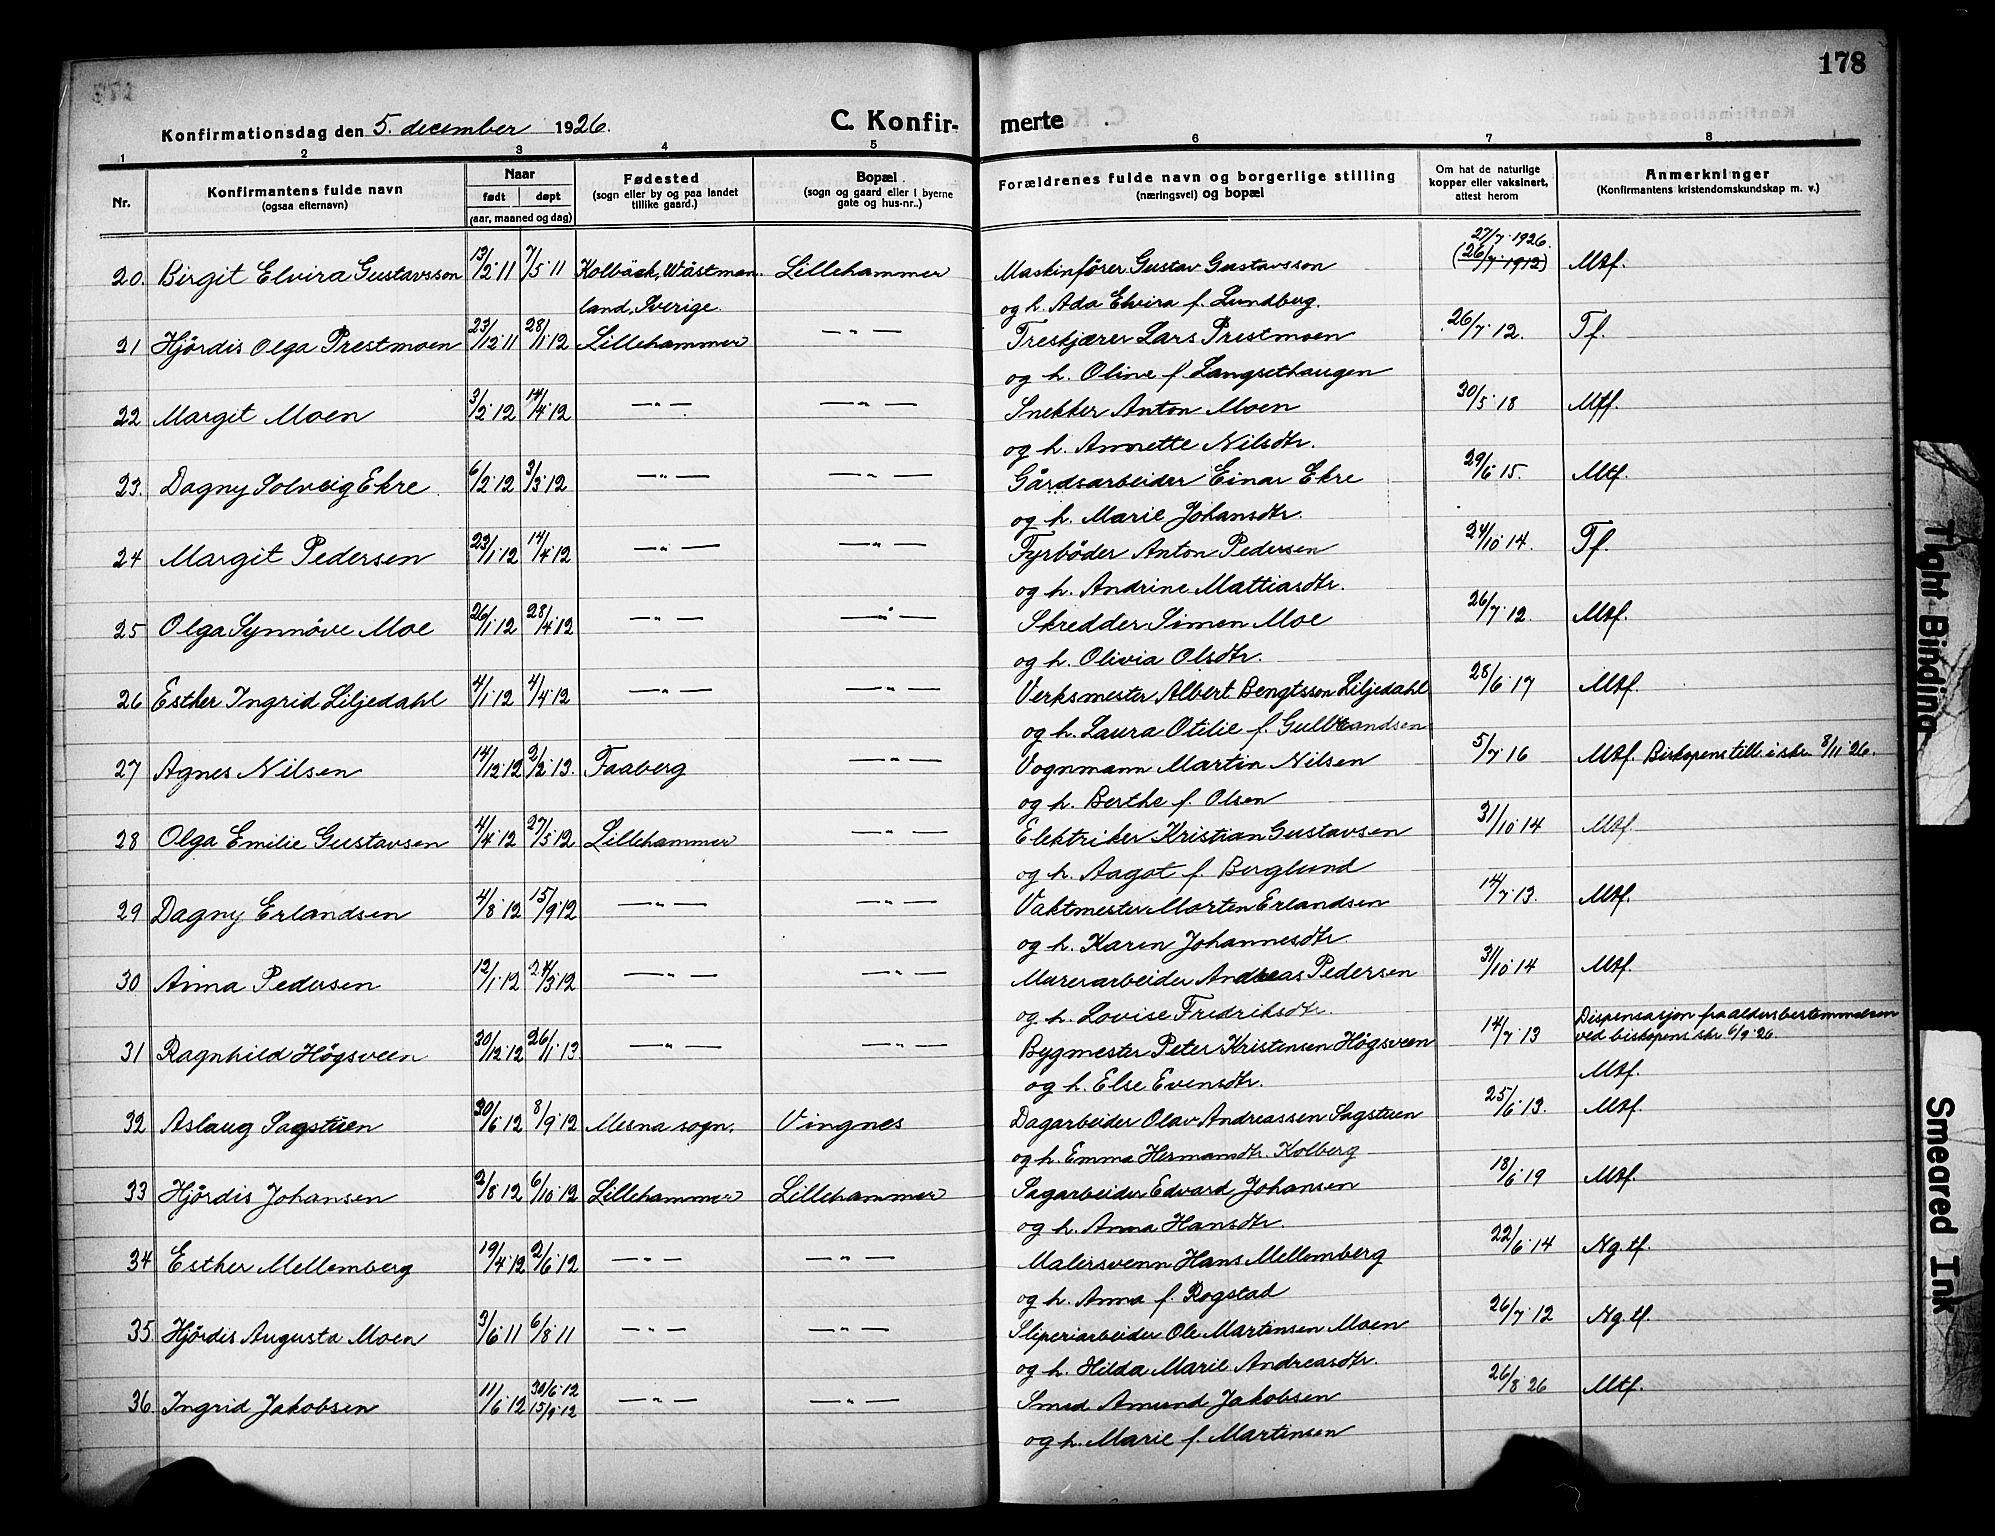 178
Konfirmationsdag den 5. december 1926.
C. Konfir-merte
1 2 3 4 5 6 7 8
Nr.
Konfirmantens fulde navn
(ogsaa efternavn)
Naar
født døpt
(aar, maaned og dag)
Fødested
(sogn eller by og paa landet
tillike gaard.)
Bopæl
(sogn og gaard eller i byerne
gate og hus-nr.)
Forældrenes fulde navn og borgerlige stilling
(næringsvei) og bopæl
Om hat de naturlige
kopper eller vaksinert,
attest herom
Anmerkninger
(Konfirmantens kristendomskundskap m. v.)
27/7 1926.
20. Birgit Elvira Gustavsson 13/2 11 7/5 11 Kolbäck, Wästman- Lillehammer Maskinfører Gustav Gustavsson (26/7 1912) Mtf.
land, Sverige. og h. Ada Elvira f. Lundberg.
21 Hjørdis Olga Prestmoen 23/12 11 28/1 12 Lillehammer —„— Treskjærer Lars Prestmoen 26/7 12. Tf.
og h. Oline f. Langsethaugen
22 Margit Moen 3/2 12 14/4 12 —„— —„— Snekker Anton Moen 30/5 18 Mtf.
og h. Annette Nilsdtr.
23. Dagny Solveig Ekre 6/2 12 3/3 12 —„— —„— Gårdsarbeider Einar Ekre 29/6 15. Mtf.
og h. Marie Johansdtr.
24 Margit Pedersen 23/1 12 14/4 12 —„— —„— Fyrbøder Anton Pedersen 24/10 14. Tf.
og h. Andrine Mattiasdtr.
25 Olga Synnöve Moe 26/1 12 28/4 12 —„— —„— Skredder Simen Moe 26/7 12. Mtf.
og h. Olivia Olsdtr.
26 Esther Ingrid Liljedahl 4/1 12 4/4 12 —„— —„— Verksmester Albert Bengtsson Liljedahl 28/6 17 Mtf.
og h. Laura Otilie f. Gulbrandsen
27 Agnes Nilsen 14/12 12 2/2 13. Faaberg —„— Vognmann Martin Nilsen 5/7 16 Mtf. Biskopens till. i skr. 8/11 26.
og h. Berthe f. Olsen
28 Olga Emilie Gustavsen 4/4 12 27/5 12 Lillehammer —„— Elektriker Kristian Gustavsen 31/10 14 Mtf.
og h. Aagot f. Berglund
29 Dagny Erlandsen 4/8 12 15/9 12 —„— —„— Vaktmester Morten Erlandsen 14/7 13. Mtf.
og h. Karen Johannesdtr.
30 Anna Pedersen 12/1 12 24/3 12 —„— —„— Murerarbeider Andreas Pedersen 31/10 14 Mtf.
og h. Lovise Fredriksdtr.
31 Ragnhild Høgsveen 30/12 12 26/1 13 —„— —„— Bygmester Peter Kristensen Høgsveen 14/7 13 Dispensasjon fra aldersbestemmelsen
ved biskopens skr. 6/9 26.
og h. Else Evensdtr. Mtf.
32 Aslaug Sagstuen 30/6 12 8/9 12 Mesna sogn. Vingnes Dagarbeider Olav Andreassen Sagstuen 25/6 13. Mtf.
og h. Emma Hermansdtr. Kolberg
33 Hjørdis Johansen 2/8 12 6/10 12 Lillehammer Lillehammer Sagarbeider Edvard Johansen 18/6 19 Mtf.
og h. Anna Hansdtr.
34 Esther Mellemberg 19/4 12 2/6 12 —„— —„— Malersvenn Hans Mellemberg 22/6 14 Ng. tf.
og h. Anna f. Rogstad
35 Hjørdis Augusta Moen 3/6 11 6/8 11 —„— —„— Sliperiarbeider Ole Martinsen Moen 26/7 12 Ng. tf.
og h. Hilda Marie Andreasdtr.
36 Ingrid Jakobsen 11/6 12 30/6 12 —„— —„— Smed Amund Jakobsen 26/8 26 Mtf.
15/9 12
og h. Marie f. Martinsen
Tight Binding
Smeared Ink